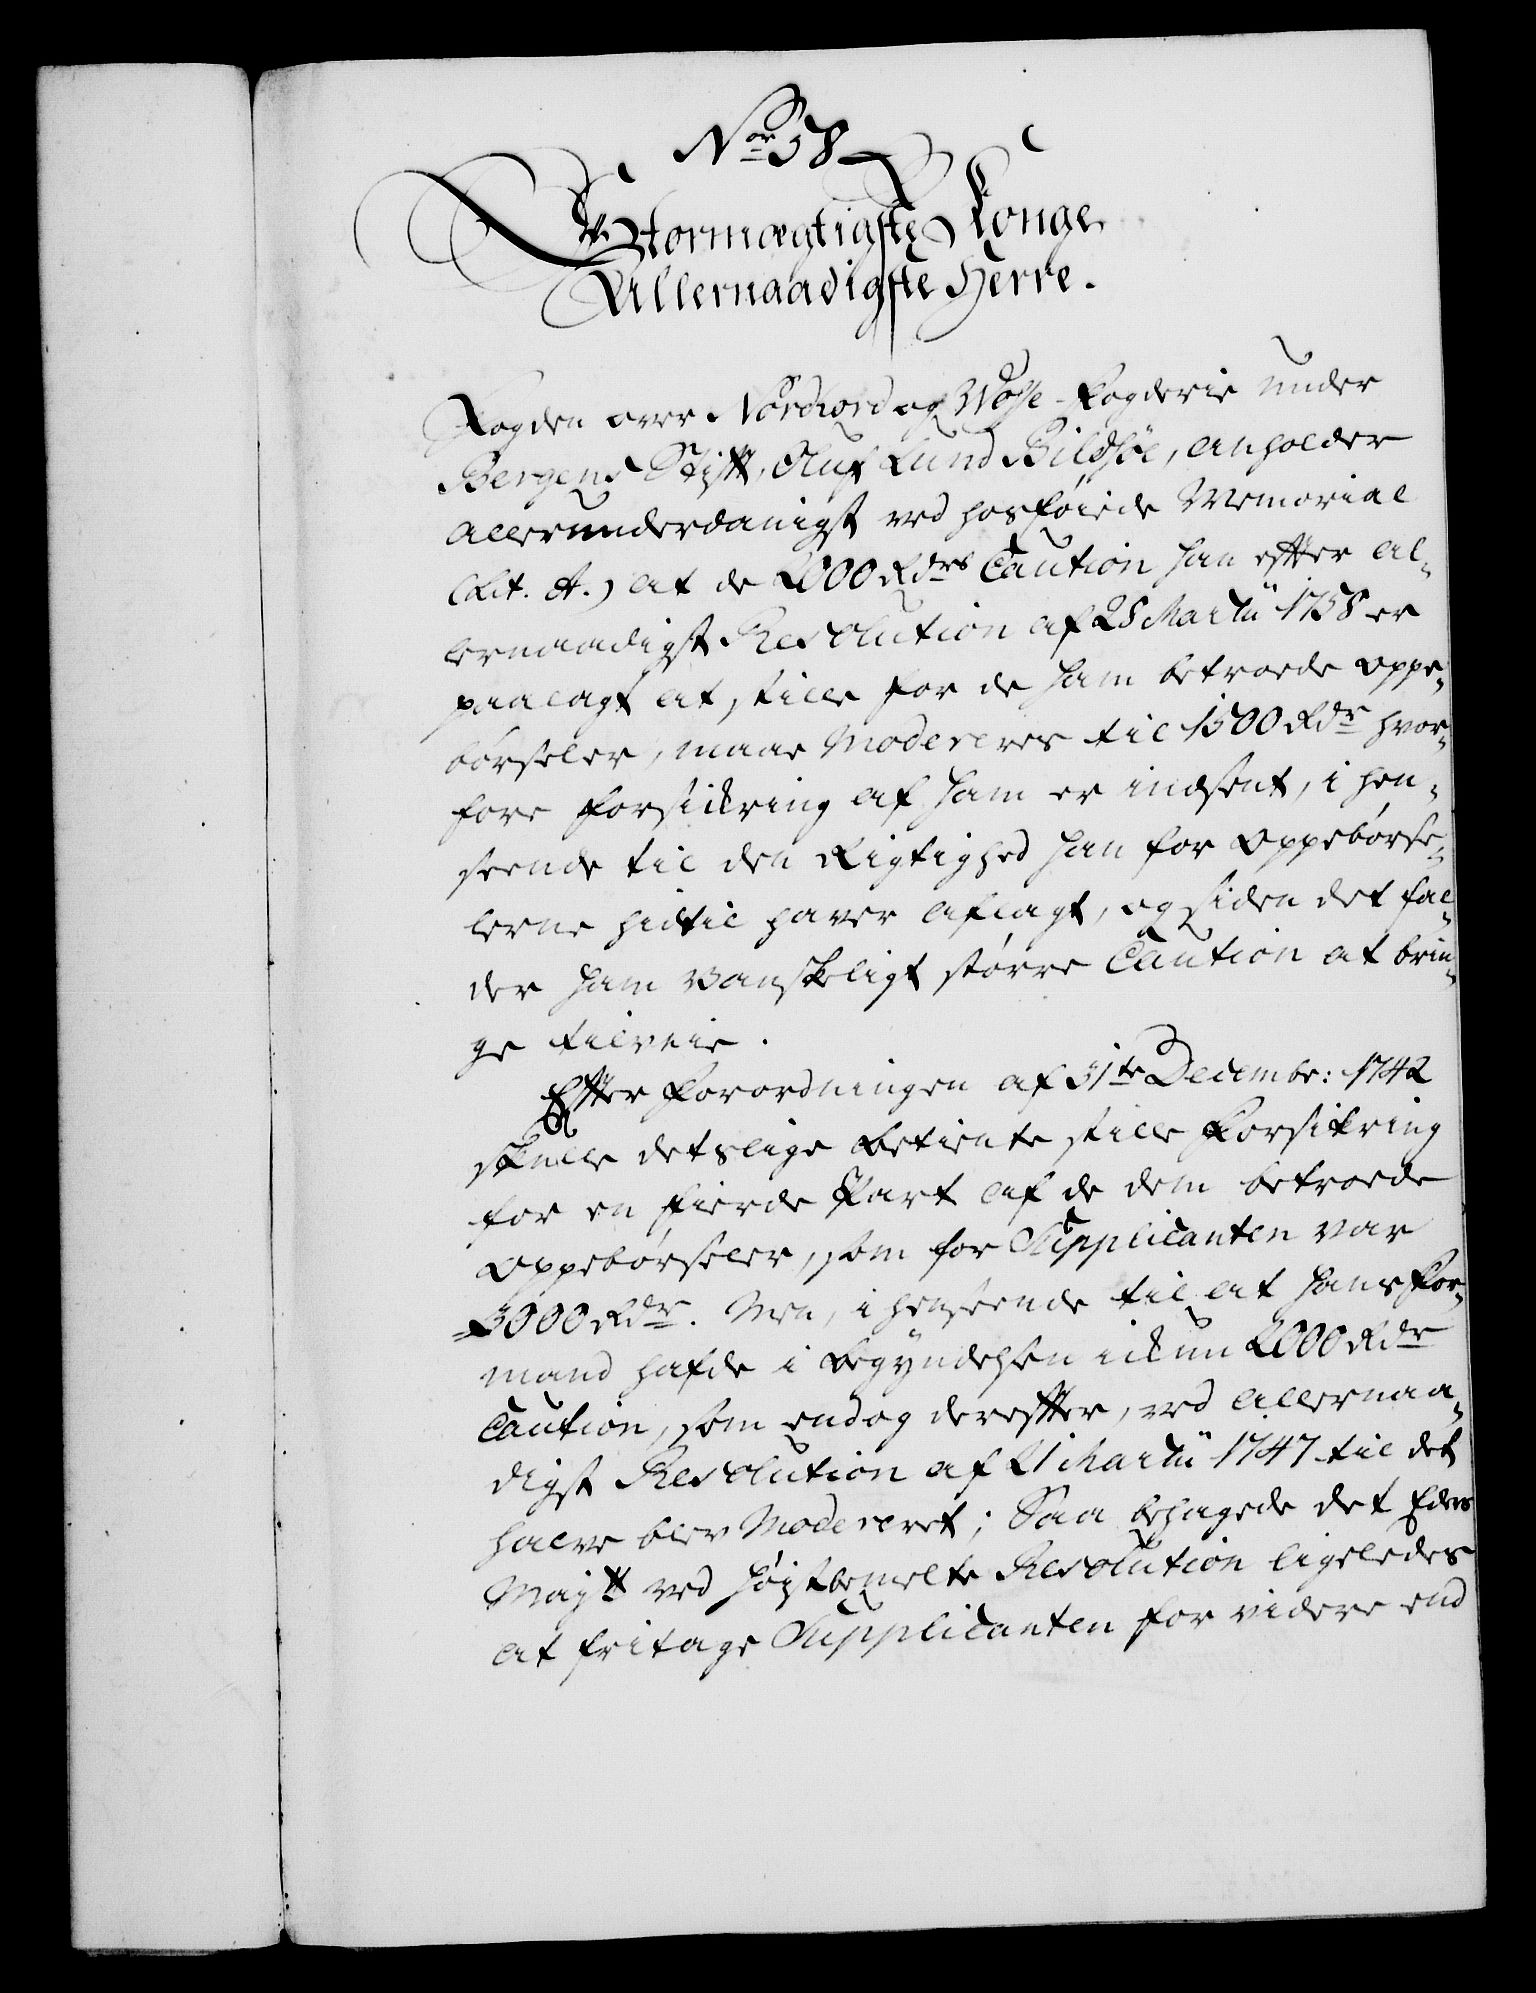 No 58
Stormægtigste Konge
Allernaadigste Herre.
Fogden over Nordhord og Wosse-Fogderie under
Bergens Stift, Oluf Lund Bildsøe, anholder
allerunderdanigst ved hosføiede Memorial
(Lit. A.) at de 2000 Rdrs Caution han efter al-
lernaadigst Resolution af 28 Martii 1758 er
paalagt at stille for de ham betroede oppe-
børseler, maae Modereres til 1500 Rdr hvor-
fore forsikring af ham er indsent, i hen-
seende til den Rigtighed han for Oppebørse-
lerne hidtil haver aflagt, og siden det fal-
der ham vanskeligt større Caution at brin-
ge tilveie.
Efter Forordningen af 31te Decembr: 1742
skulle detslige betiente stille Forsikring
for en fierde Part af de dem betroede
Oppebørseler, som for Supplicanten var
3000 Rdr. Men, i henseende til at hans For-
mand hafde i Begyndelsen ickun 2000 Rdr
Caution, som endog derefter, ved allernaa-
digst Resolution af 21 Martii 1747 til det
halve blev Modereret; Saa behagede det Eders
Majtt ved høistbemelte Resolution ligeledes
at fritage Supplicanten for videre end